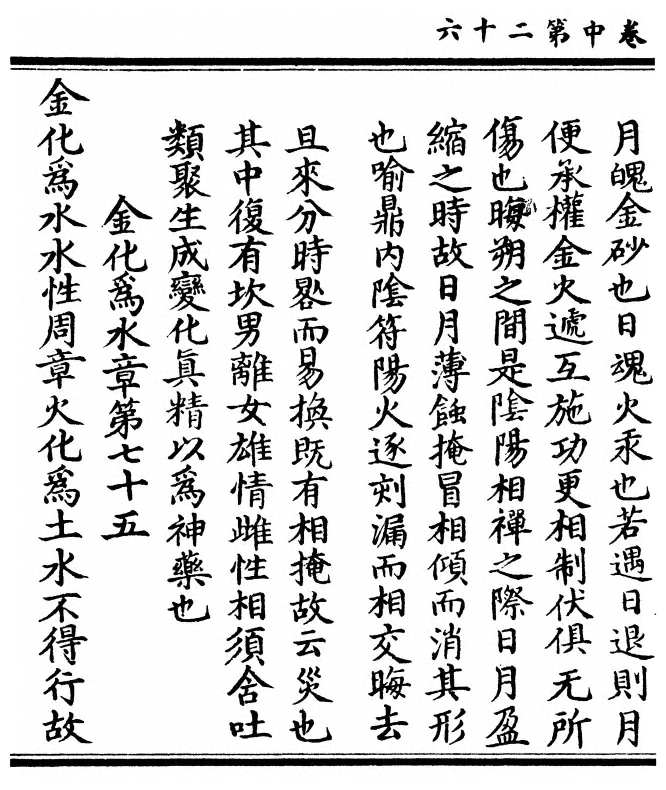 卷中第二十六
月魄金砂也日魂火汞也若遇日退則月
便承權金火遞互施功更相制伏俱无所
傷也晦朔之間是陰陽相禪之際日月盈
縮之時故日月薄蝕掩冒相傾而消其形
也喻鼎内陰符陽火逐刻漏而相交晦去
旦來分時晷而易換既有相掩故云災也
其中復有坎男離女雄情雌性相須含吐
類聚生成變化真精以爲神藥也
金化爲水章第七十五
金化爲水水性周章火化爲土水不得行故